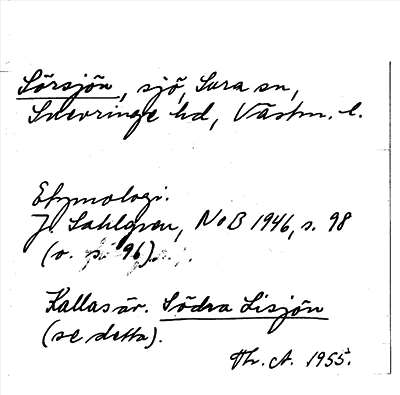 Sörsjön, sjö, Sura sn,
Snevringe hd, Västm. l.
Etymologi.
J. Sahlgren, NoB 1946, s. 98
(o. s. 96).
Kallas är. Södra Lisjön
(se detta).
Th. A. 1955.